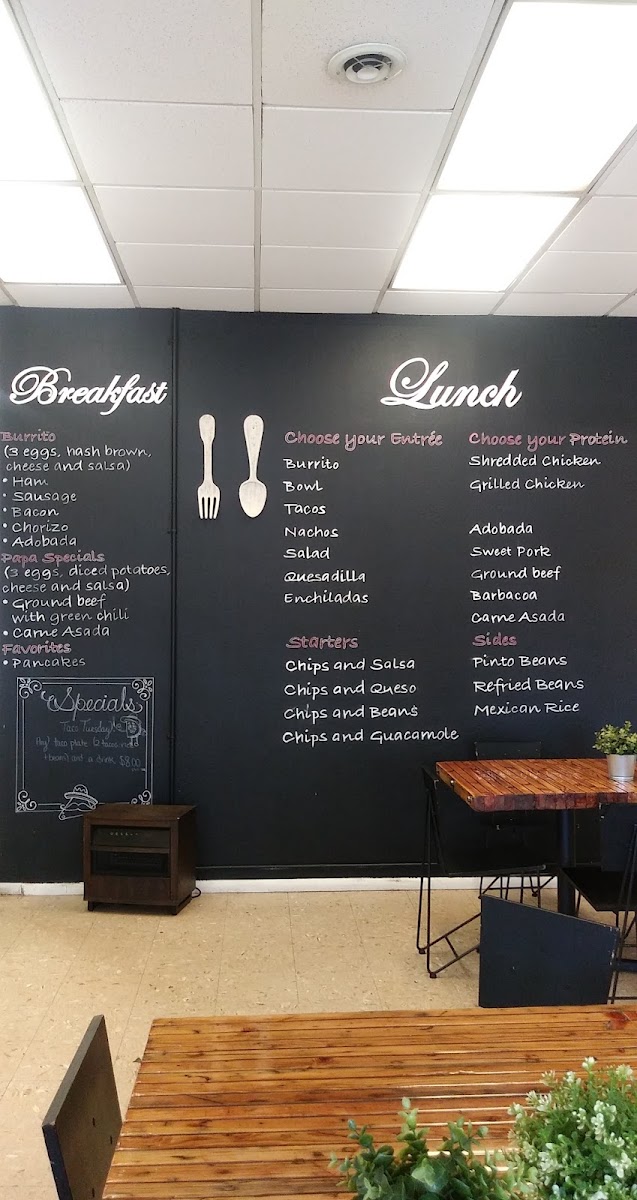 Breakfast
Burrito
(3 eggs, hash brown,
cheese and salsa)
• Ham
• Sausage
• Bacon
• Chorizo
• Adobada
Papa Specials
(3 eggs, diced potatoes,
cheese and salsa)
• Ground beef
with green chili
• Carne Asada
Favorites
• Pancakes
Specials
Taco Tuesday
taco plate (2 tacos rice
+ beans) and a drink $8.00
Lunch
Choose your Entrée
Burrito
Bowl
Tacos
Nachos
Salad
Quesadilla
Enchiladas
Starters
Chips and Salsa
Chips and Queso
Chips and Beans
Chips and Guacamole
Choose your Protein
Shredded Chicken
Grilled Chicken
Adobada
Sweet Pork
Ground beef
Barbacoa
Carne Asada
Sides
Pinto Beans
Refried Beans
Mexican Rice